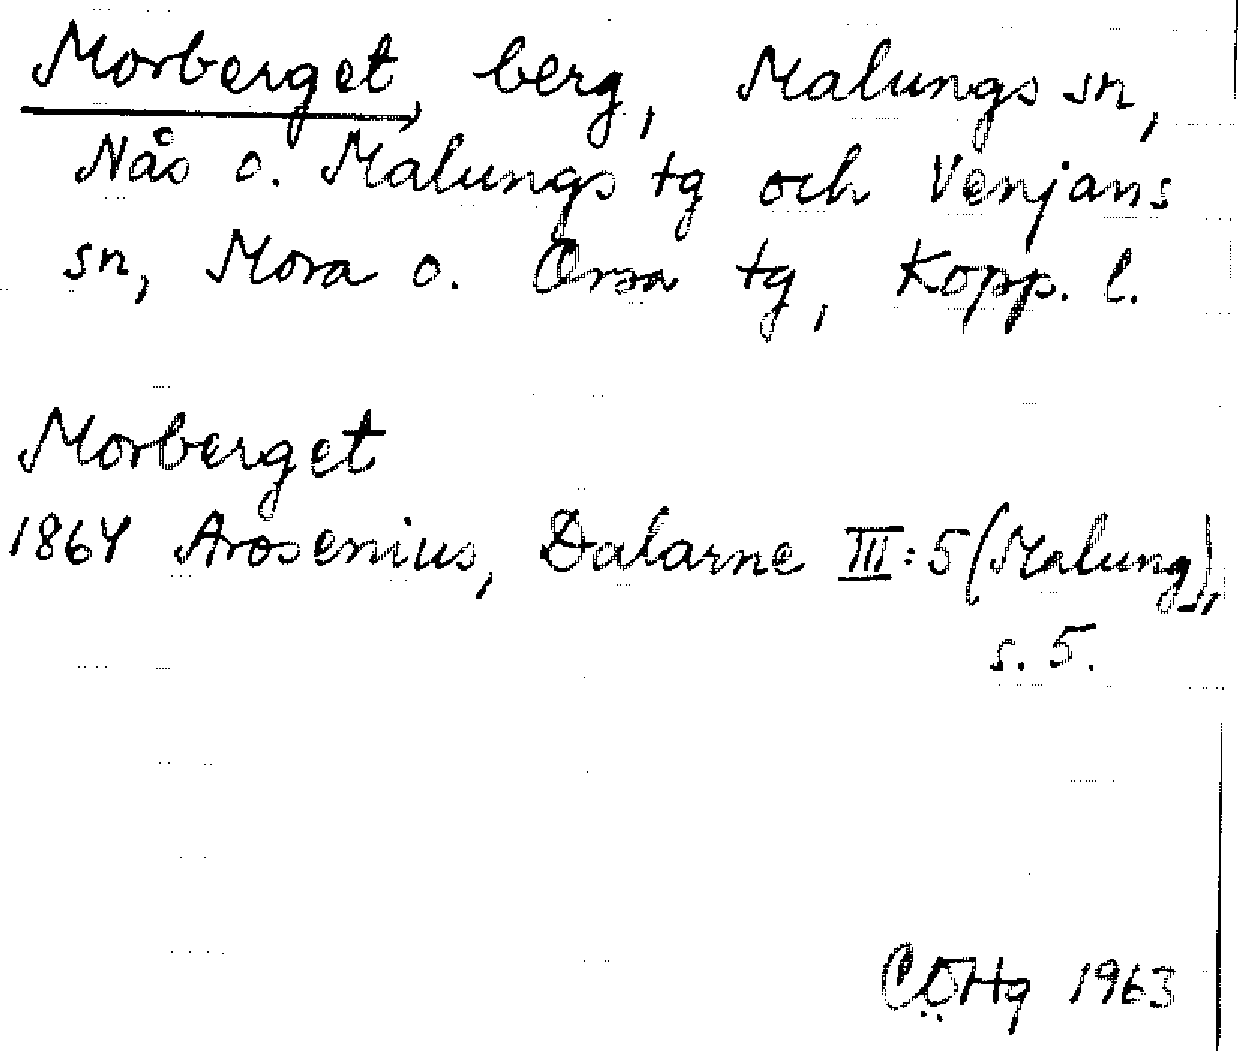 Morberget, berg, Malungs sn,
Nås o. Malungs tg och Venjans
sn, Mora o. Orsa tg, Kopp. l.
Morberget
1864 Arosenius, Dalarne III:5 (Malung),
s. 5.
1963